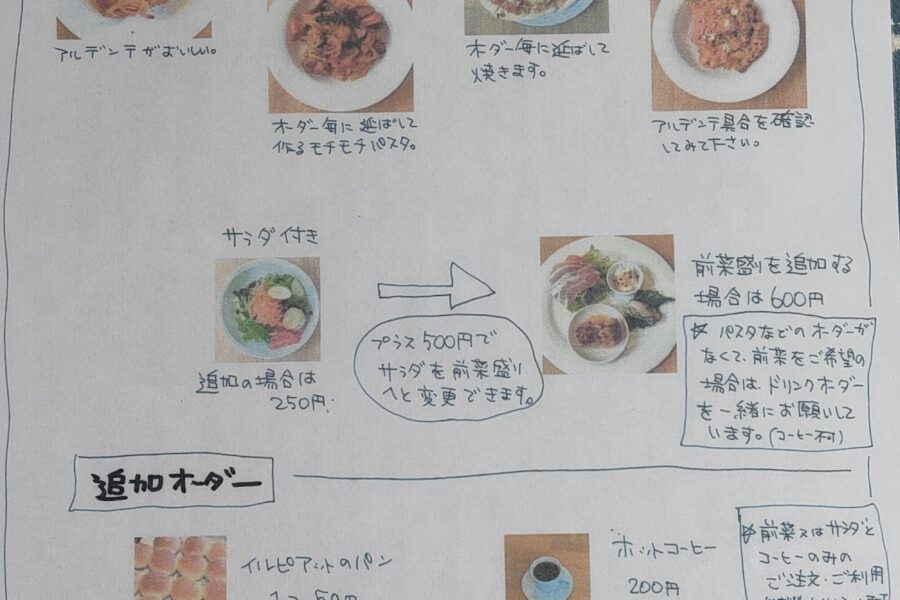 アルデンテがおいしい。
オーダー毎に延ばして
作るモチモチパスタ。
オーダー毎に延ばして
焼きます。
アルデンテ具合を確認
してみて下さい。
サラダ付き
追加の場合は
250円。
プラス500円で
サラダを前菜盛り
へと変更できます。
前菜盛りを追加する
場合は600円
☆ パスタなどのオーダーが
なくて、前菜をご希望の
場合は、ドリンクオーダー
を一緒にお願いして
います。(コーヒー不可)
追加オーダー
イルピアットのパン
1コ 50円
ホットコーヒー
200円
☆前菜又はサラダと
コーヒーのみの
ご注文・ご利用